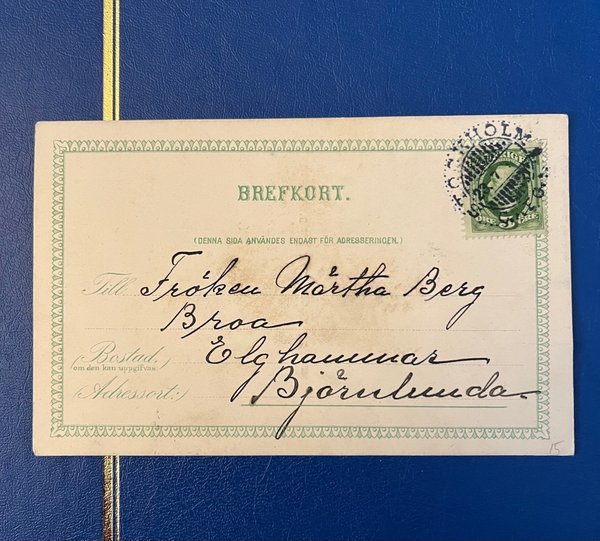 STOCKHOLM
5 ÖRE
BREFKORT.
(DENNA SIDA ANVÄNDES ENDAST FÖR ADRESSERINGEN.)
Till Fröken Märtha Berg
Broa
(Bostad, Elghammar
om den kan uppgifvas
(Adressort:) Björnlunda
15